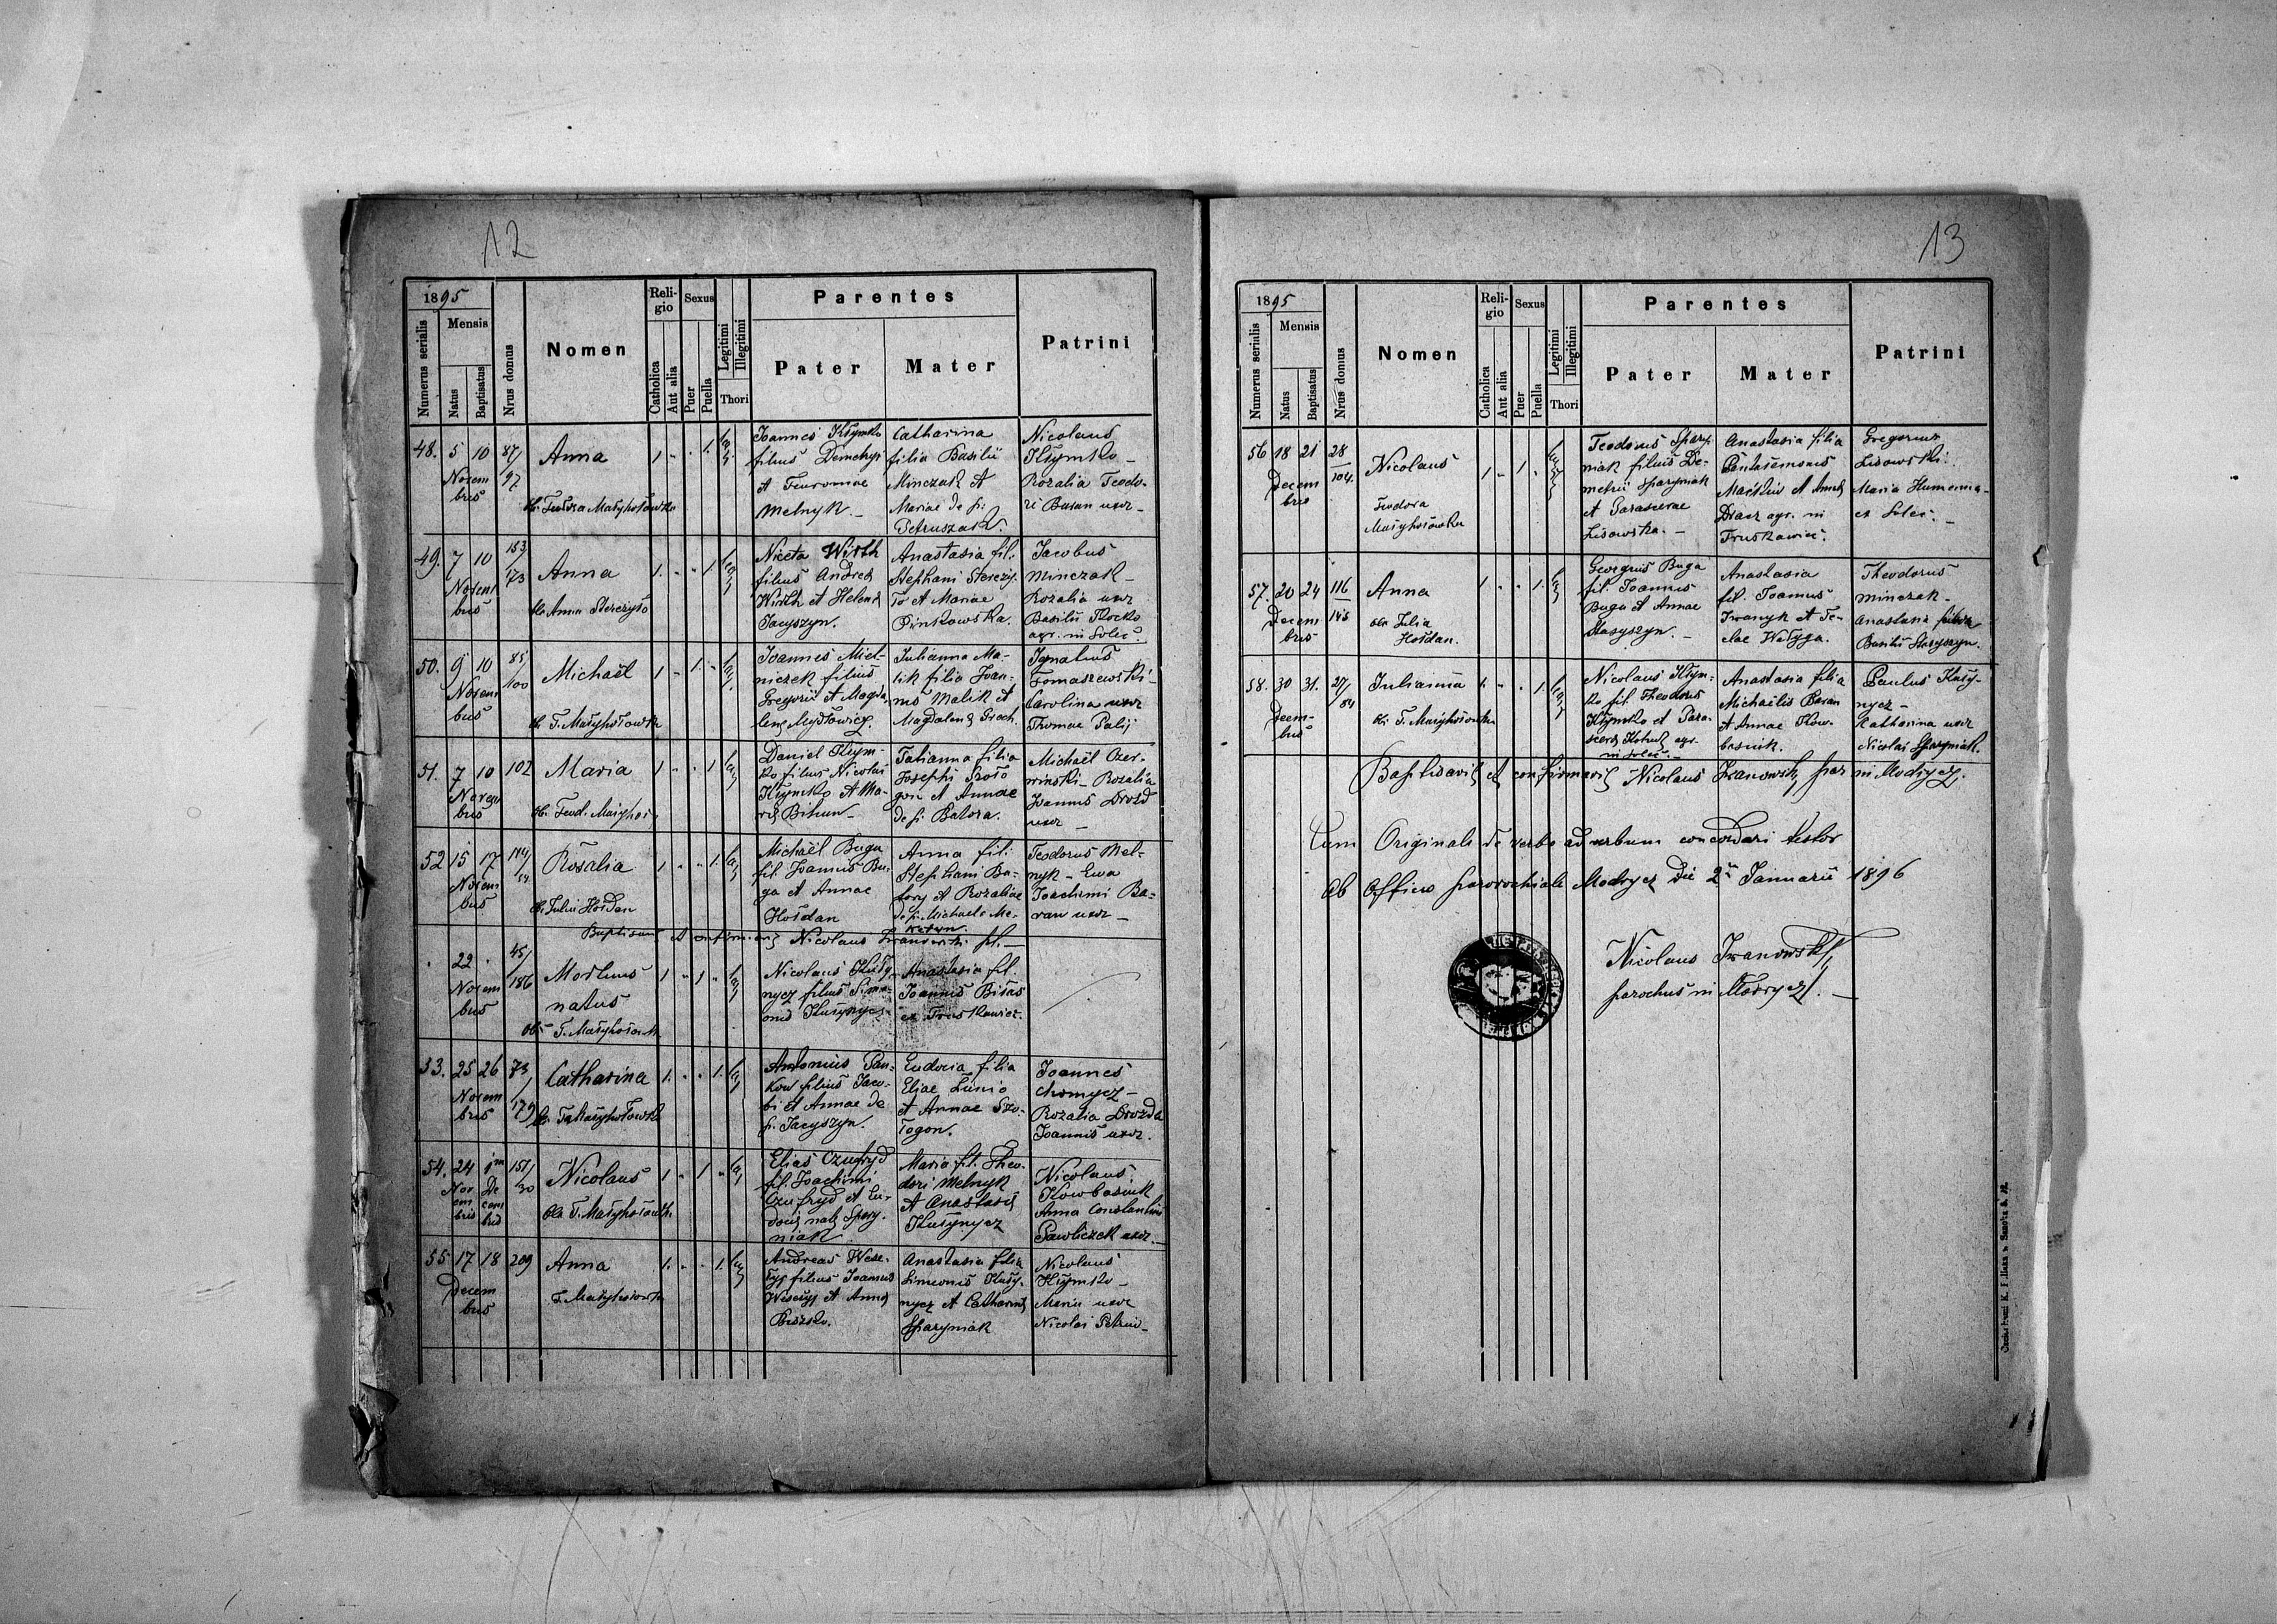 12
1895
Mensis
Numerus serialis
Natus
Baptisatus
Nrus domus
Nomen
Reli-
gio
Catholica
Aut alia
Sexus
Puer
Puella
Legitimi
Illegitimi
Thori
Parentes
Pater
Mater
Patrini
48. 5 10 87/97
Novem
bris
Anna
Joannes Kłymko
filius
et
Melnyk. —
Catharina
filia Basilii
Minczak et
Mariae de fi:
Petruszak.
Nicolaus
Kłymko —
Rozalia Teodo-
ri Baran uxor —
49. 7 10 153/173
Novem
bris
Anna
Niceta Wirth
filius Andreæ
Wirth et Helenæ
Jacyszyn.
Anastasia fil:
Stephani
et Mariae
Pinkowska.
Jacobus
Minczak —
Rozalia uxor
Basilii Kocko
agr. in Solec.
50. 9 10 85/100
Novem
bris
Michaël
Joannes Miel-
niczek filius
Gregorii et Magda
lenæ Mydłowicz.
Julianna Ma-
lik filia Joan-
nis Malik et
Magdalenæ Groch.
Ignatius
Tomaszewski —
Carolina uxor
Thomae Palij
51. 7 10 102
Novem
bris
Maria
Daniel Kłym-
ko filius Nicolai
Kłymko et Ma-
riæ Bihun —
Tatianna filia
Josephi Szoło
gon et Annae
de fi: Batora.
Michaël Ozer-
winski — Rozalia
Joannis Drozd
uxor —
52 15 17 114/54
Novem
bris
Rosalia
ob. Julia Hołdan
Michaël Buga
fil Joannis Bu-
ga et Annae
Hołdan
Anna fil:
Stephani Ba-
tory et Rozaliae
de fi: Michaelis Me-
Teodorus Mel-
nyk — Ewa
Joachimi Ba-
ran uxor —
Baptisavi et confirmavi Nicolaus Iwanowski
22 45/186
Novem
bris
Mortuus
natus
Nicolaus Kuły-
nycz filius Sime-
onis Kułynycz
Anastasia fil.
Joannis Bilas
ex Truskawiec.
53. 25 26 73/179
Novem
bris
Catharina
Antonius Pan-
kow filius Jaco-
bi et Annae de
fi. Jacyszyn.
Eudocia filia
Eliae Łunio
et Annae Szo-
łogon.
Joannes
Chomycz —
Rozalia Drozda
Joannis uxor.
54. 24 1ma 151/30
Nov
em
bris
De
cem
bris
Nicolaus
Elias Czufryd
fil Joachimi
Czufryd et Eu-
dociæ natæ Spary-
niak.
Maria fil. Theo-
dori Melnyk
et Anastasiæ
Kułynycz
Nicolaus
Kowbasniuk
Anna Constantini
Pawliczek uxor. —
55 17 18 209
Decem
bris
Anna
Andreas Wese-
łyj filius Joannis
Wesełyj et Annæ
Anastasia filia
Simeonis Kuły-
nycz et Catharinæ
Sparyniak
Nicolaus
Kłymko —
Maria uxor
Nicolai
13
1895
Mensis
Numerus serialis
Natus
Baptisatus
Nrus domus
Nomen
Reli-
gio
Catholica
Aut alia
Sexus
Puer
Puella
Legitimi
Illegitimi
Thori
Parentes
Pater
Mater
Patrini
56 18 21 28/104.
Decem
bris
Nicolaus
Teodora
Teodorus Spary-
niak filius De-
metrii Sparyniak
et Parascevae
Lisowska. —
Anastasia filia
Maćkiw et Annæ
Dracz agr. in
Truskawiec.
Gregorius
Lisowski.
Maria Humenna —
ex Solec. —
57. 20 24 116/145
Decem
bris
Anna
obs. Julia
Hołdan.
Georgius Buga
fil. Joannis
Buga et Annae
Stasyszyn. —
Anastasia
fil. Joannis
Iwanyk et Te-
clae Wołyga.
Theodorus
Minczak —
Anastasia
Basilii Stasyszyn.
58. 30 31. 27/84
Decem-
bris
Julianna
Nicolaus Kłym-
ko fil Theodori
Kłymko et Para-
scevæ agr.
in Solec. —
Anastasia filia
Michaëlis Baran
et Annae Kow-
basniuk.
Paulus Kuły-
nycz —
Katharina uxor
Nicolai Sparyniak.
Baptisavit et confirmavit Nicolaus Iwanowski par in Modrycz.
Cum Originali de verbo ad verbum concordari testor
Ab Officio parochiali Modrycz Die 2ª Januarii 1896
Nicolaus Iwanowski
parochus in Modrycz. —